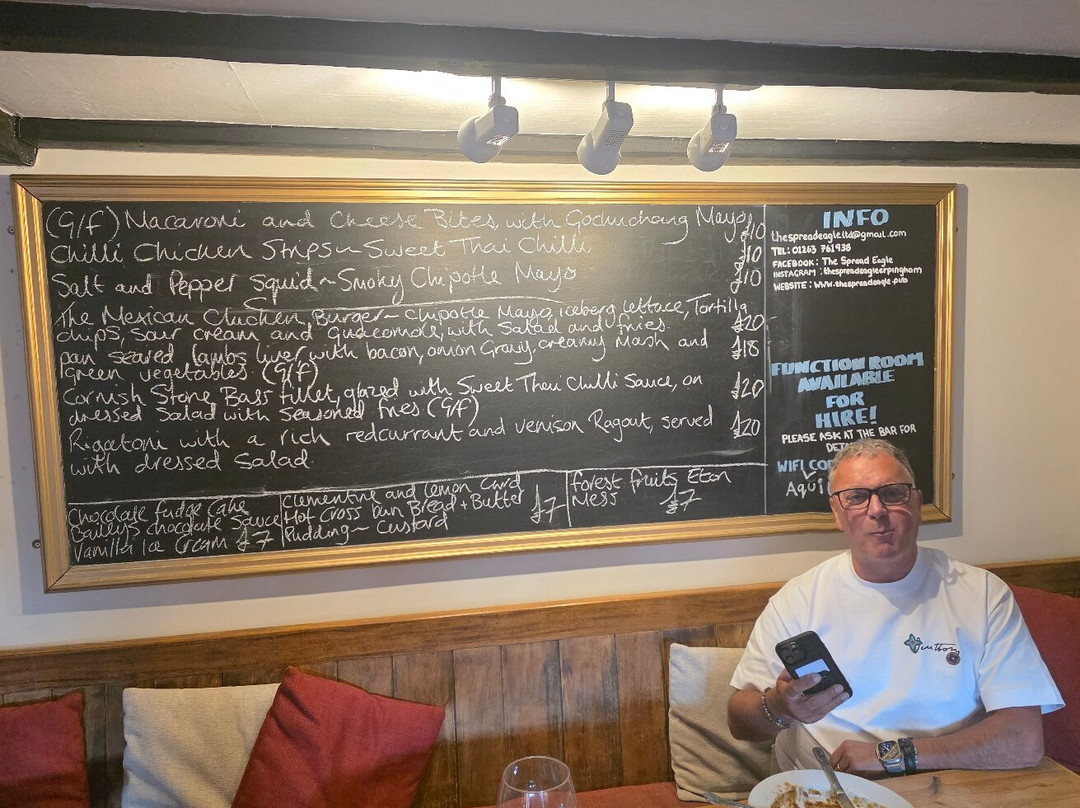 (G/f) Macaroni and Cheese Bites, with Gochuchang Mayo £10
Chilli Chicken Strips ~ Sweet Thai Chilli £10
Salt and Pepper Squid ~ Smoky Chipotle Mayo £10
The Mexican Chicken Burger ~ Chipotle Mayo, iceberg lettace, Tortilla
chips, Sour cream and Guacamole, with Salad and fries. £20
pan seared lambs liver, with bacon, onion Gravy, creamy Mash and £18
green vegetables. (G/f)
Cornish Stone Bass fillet, glazed with Sweet Thai Chilli Sauce, on £20
dressed Salad with Seasoned fries (G/f)
Rigatoni with a rich redcurrant and venison Ragout, served £20
with dressed Salad.
Chocolate fudge Cake
Baileys Chocolate Sauce
Vanilla Ice Cream £7
Clementine and Lemon Curd
Hot Cross bun Bread + Butter £7
Pudding ~ Custard
forest fruits Eton
Mess £7
INFO
thespreadeagleltd@gmail.com
TEL: 01263 761938
FACEBOOK: The Spread Eagle
INSTAGRAM: thespreadeagleerpingham
WEBSITE: www.thespreadeagle.pub
FUNCTION ROOM
AVAILABLE
FOR
HIRE!
PLEASE ASK AT THE BAR FOR
WIFI